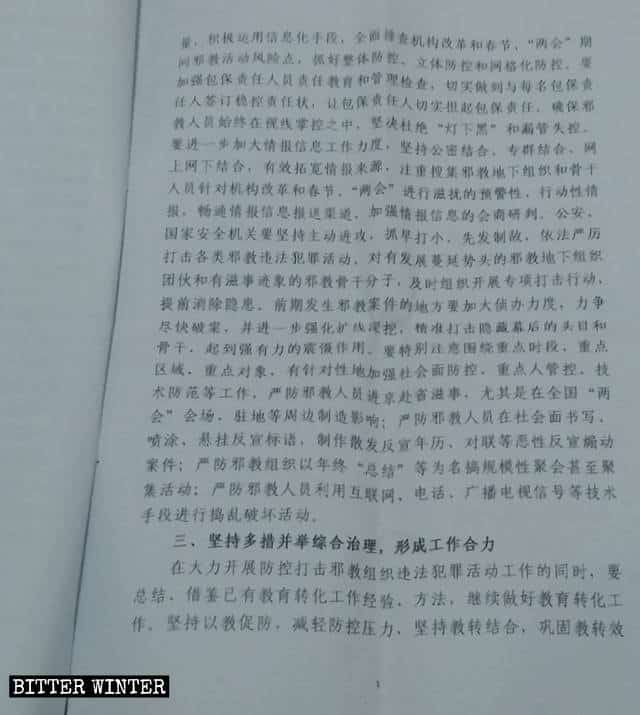 量，积极运用信息化手段，全面排查机构改革和春节、“两会”期
间邪教活动风险点，抓好整体防控、立体防控和网格化防控。要
加强包保责任人员责任教育和管理检查，切实做到与每名包保责
任人签订稳控责任状，让包保责任人切实担起包保责任，确保邪
教人员始终在视线掌控之中，坚决杜绝“灯下黑”和漏管失控。
要进一步加大情报信息工作力度，坚持公密结合、专群结合、网
上网下结合，有效拓宽情报来源，注重搜集邪教地下组织和骨干
人员针对机构改革和春节、“两会”进行滋扰的预警性、行动性情
报，畅通情报信息报送渠道，加强情报信息的会商研判。公安、
国家安全机关要坚持主动进攻，抓早打小，先发制敌，依法严厉
打击各类邪教违法犯罪活动。对有发展蔓延势头的邪教地下组织
团伙和有滋事迹象的邪教骨干分子，及时组织开展专项打击行动，
提前消除隐患。前期发生邪教案件的地方要加大侦办力度，力争
尽快破案，并进一步强化扩线深挖，精准打击隐藏幕后的头目和
骨干，起到强有力的震慑作用。要特别注意围绕重点时段、重点
区域、重点对象，有针对性地加强社会面防控、重点人管控、技
术防范等工作，严防邪教人员进京赴省滋事，尤其是在全国“两
会”会场、驻地等周边制造影响；严防邪教人员在社会面书写、
喷涂、悬挂反宣标语，制作散发反宣年历、对联等恶性反宣煽动
案件；严防邪教组织以年终“总结”等为名搞规模性聚会甚至聚
集活动；严防邪教人员利用互联网、电话、广播电视信号等技术
手段进行捣乱破坏活动。
三、坚持多措并举综合治理，形成工作合力
在大力开展防控打击邪教组织违法犯罪活动工作的同时，要
总结、借鉴已有教育转化工作经验、方法，继续做好教育转化工
作。坚持以教促防，减轻防控压力，坚持教转结合，巩固教转效
1
BITTER WINTER